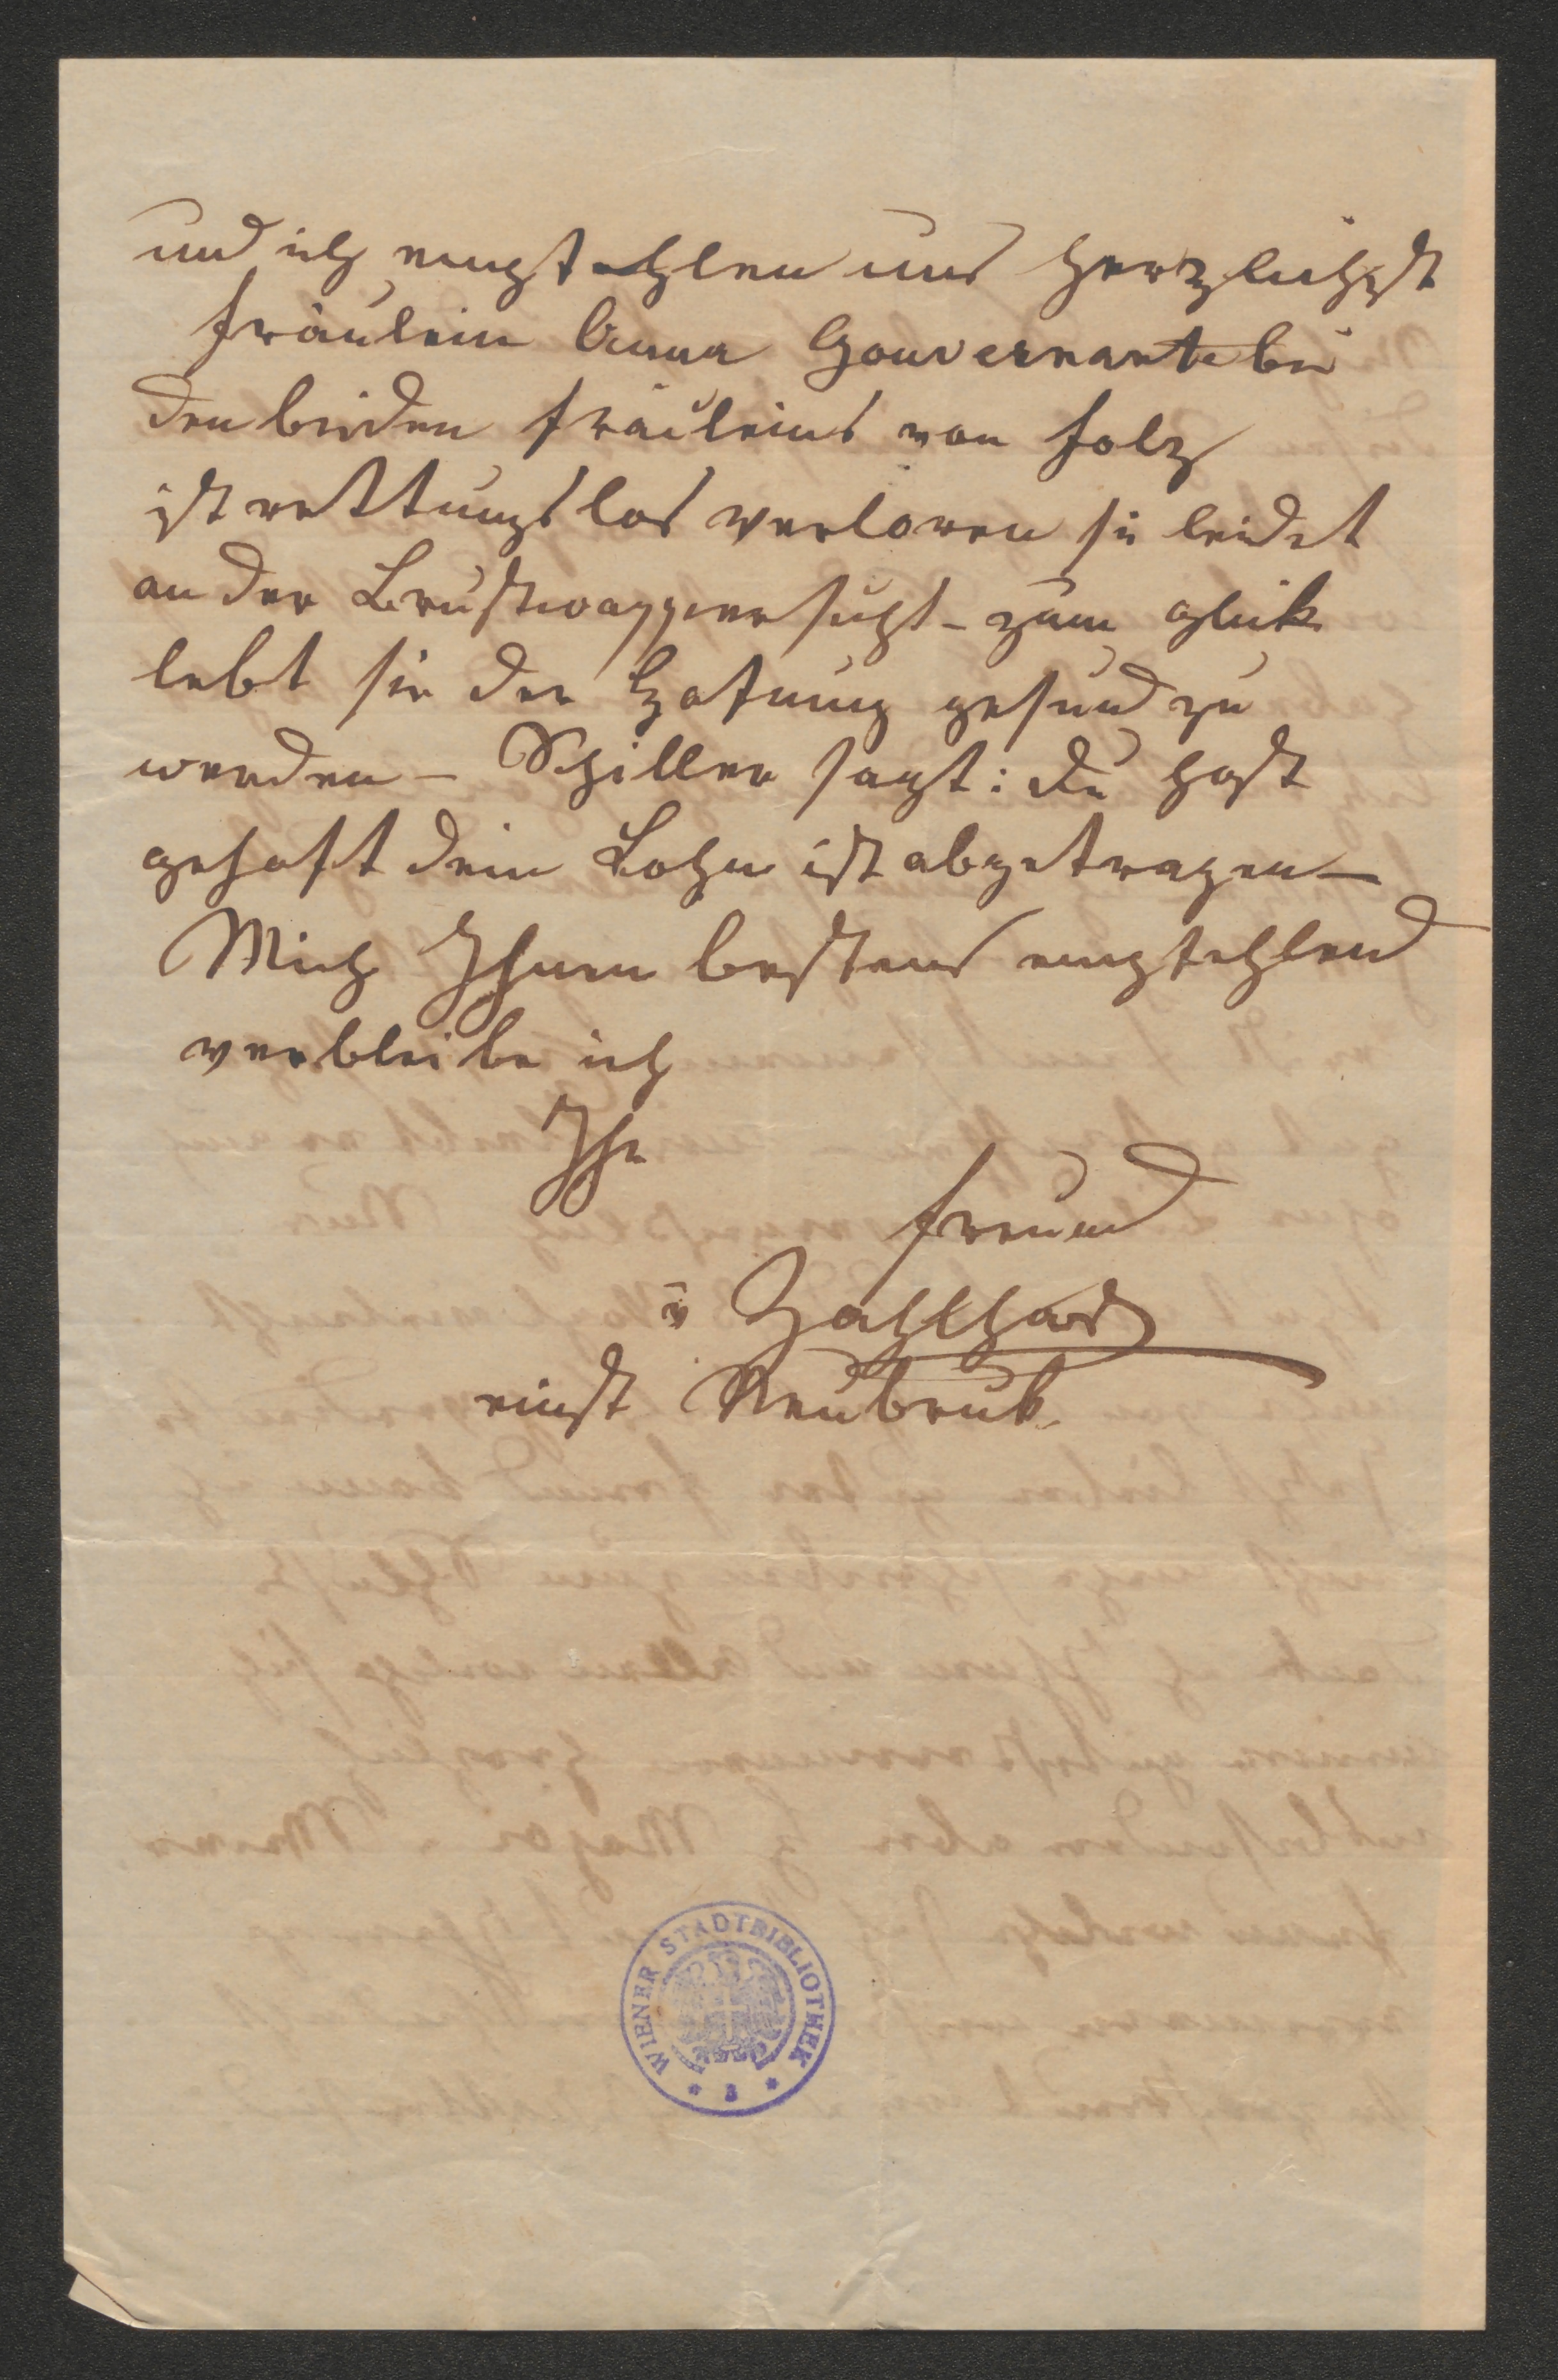 und ich empfehlen uns herzlichst
Fräulein Anna Gouvernante bei
den beiden Fräuleins von Folz
ist rettungslos verloren sie leidet
an der Brustwassersucht – zum glük
lebt sie der Hofnung gesund zu
werden – Schiller sagt: du hast
gehoft dein Lohn ist abgetragen –
Mich Ihnen bestens empfehlend
verbleibe ich
Ihr
Freund
v Zahlhas
einst Neubruk
WIENER STADTBIBLIOTHEK